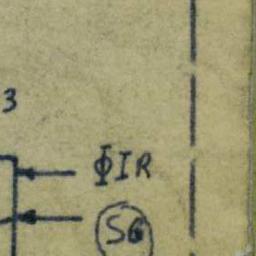 3
ΦIR
S6